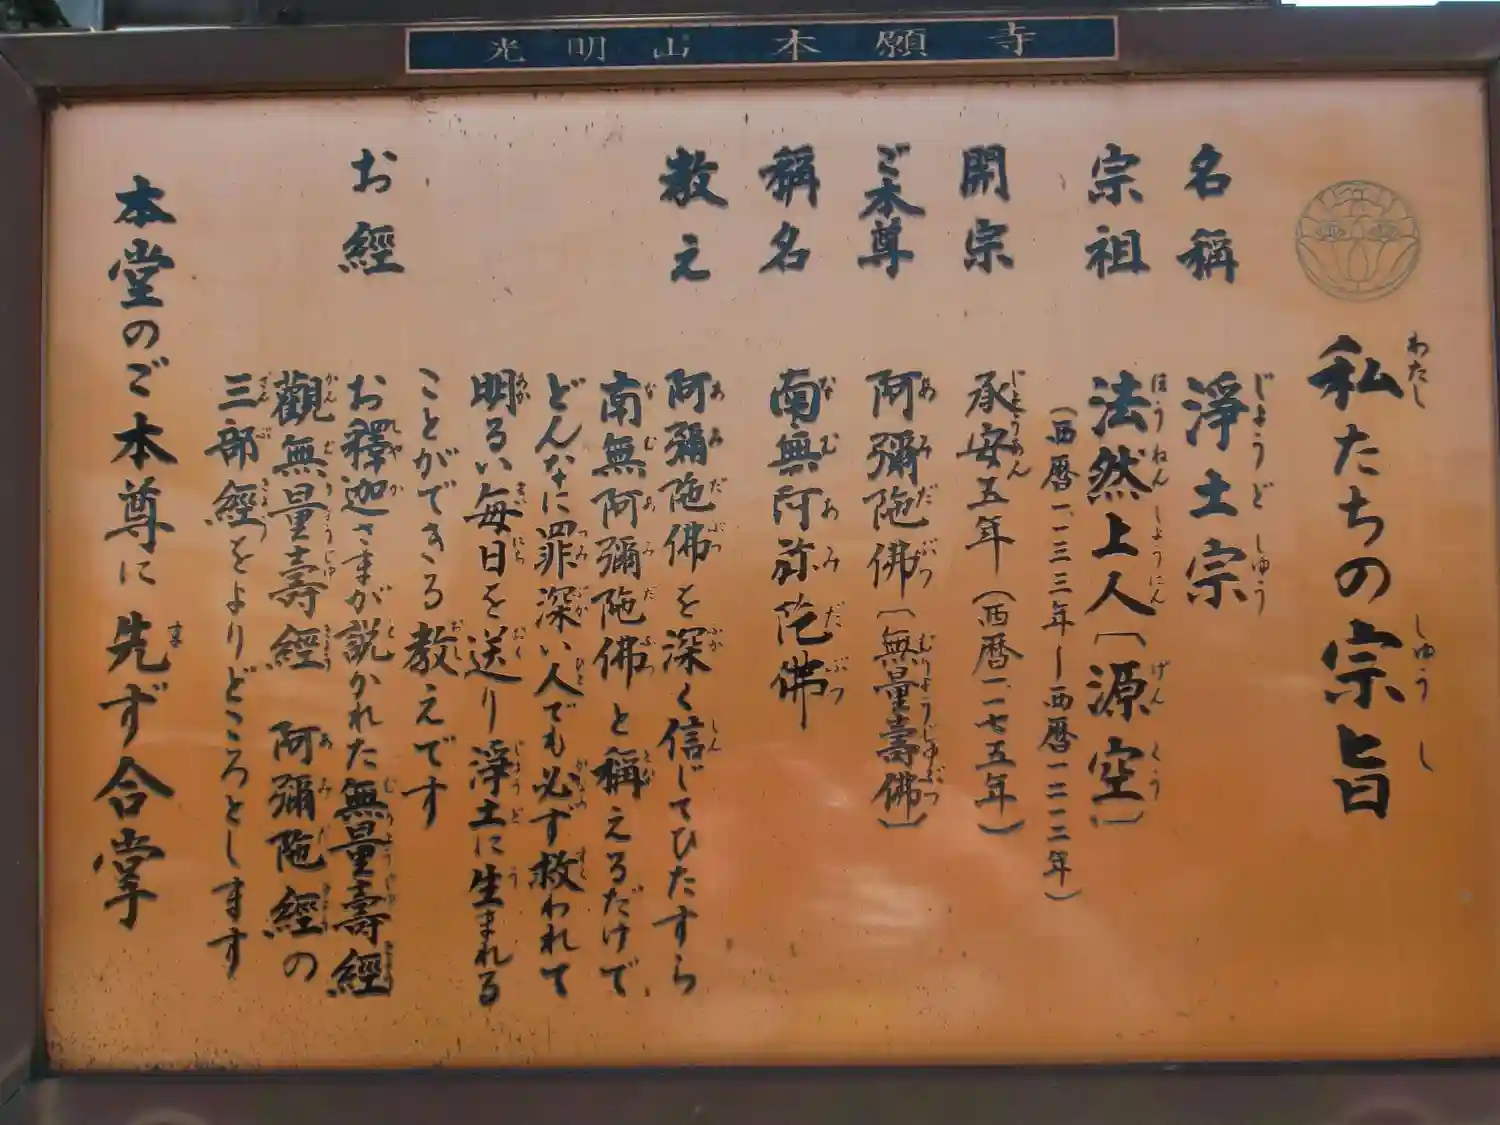 光明山 本願寺
私たちの宗旨
名稱 淨土宗
宗祖 法然上人(源空)
(西暦一一三三年ー西暦一二一二年)
開宗 承安五年(西暦一一七五年)
ご本尊 阿彌陁佛(無量壽佛)
稱名 南無阿弥陀佛
教え 阿彌陁佛を深く信じてひたすら
南無阿彌陁佛と稱えるだけで
どんなに罪深い人でも必ず救われて
明るい毎日を送り淨土に生まれる
ことができる教えです
お經 お釋迦さまが説かれた無量壽經
觀無量壽經 阿彌陁經の
三部經をよりどころとします
本堂のご本尊に先ず合掌